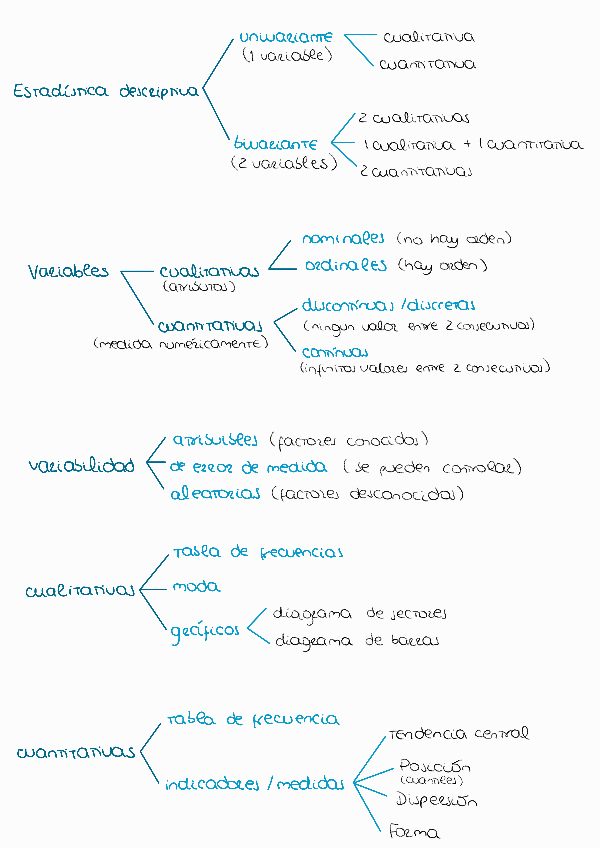 Estadística descriptiva
univariante
(1 variable)
cualitativa
cuantitativa
bivariante
(2 variables)
2 cualitativas
1 cualitativa + 1 cuantitativa
2 cuantitativas
Variables
cualitativas
(atributos)
nominales (no hay orden)
ordinales (hay orden)
cuantitativas
(medida numéricamente)
discontinuas / discretas
(ningun valor entre 2 consecutivos)
continuas
(infinitos valores entre 2 consecutivos)
variabilidad
atribuibles (factores conocidos)
de error de medida (se pueden controlar)
aleatorias (factores desconocidos)
cualitativas
tabla de frecuencias
moda
gráficos
diagrama de sectores
diagrama de barras
cuantitativas
tabla de frecuencia
indicadores / medidas
Tendencia central
Posición
(cuantiles)
Dispersión
Forma